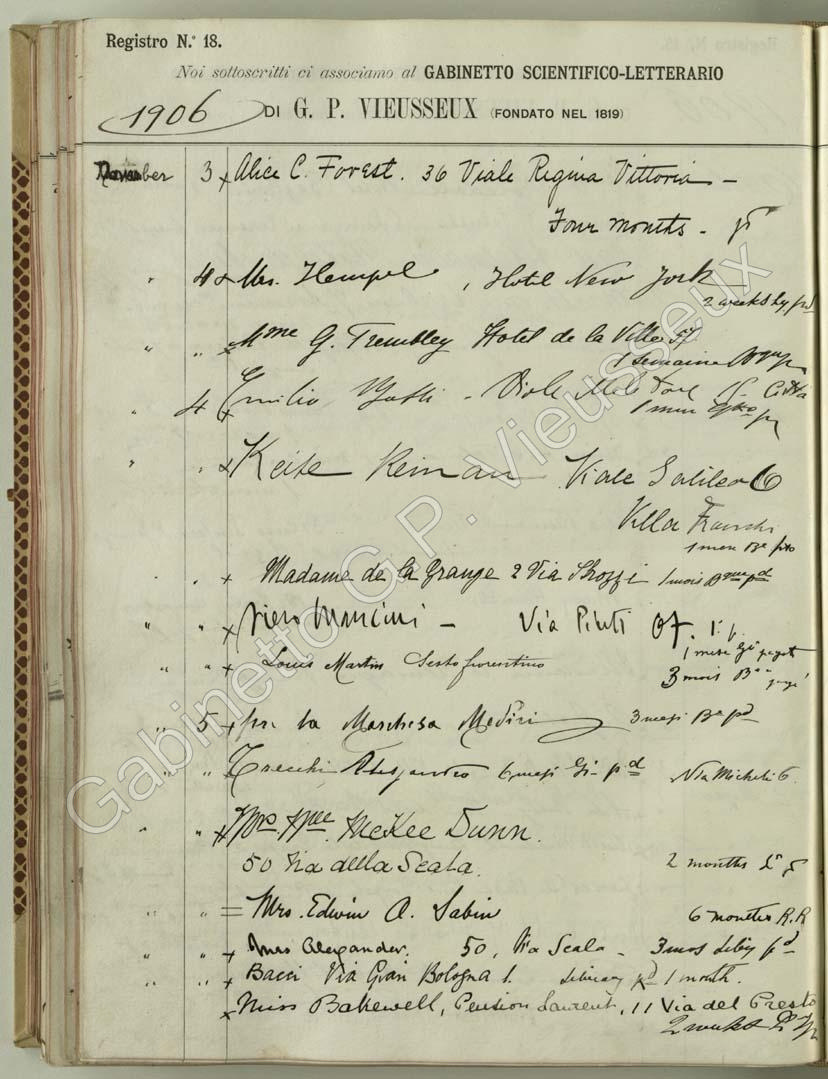 Registro N.º 18.
Noi sottoscritti ci associamo al GABINETTO SCIENTIFICO-LETTERARIO
1906 DI G. P. VIEUSSEUX (FONDATO NEL 1819)
November 3 x Alice C. Forest. 36 Viale Regina Vittoria –
Four months –
" 4 x Mrs. Hempel, Hotel New York
2 weeks
" " x Mme G. Trembley Hotel de la Ville 57
1 semaine
" 4 x Emilio
1 mese
" " x Keite Reiman Viale Galileo 6
Villa
1 mese
" " x Madame de la Grange 2 Via Strozzi 1 mois
" " x Piero Mancini – Via Pinti 87.
1 mese
" " x Louis Martin Sesto fiorentino
3 mois
" 5 x per la Marchesa Medici 3 mesi Be pd
" " x Trecchi Alessandro 6 mesi Gi– pd Via Micheli 6.
" " x McKee Dunn.
50 Via della Scala. 2 months
" " = Mrs. Edwin A. Sabin 6 months R.R
" " x Mrs Alexander. 50, Via Scala – 3 mos
" " x Bacci Via Gran Bologna 1. library pd 1 month.
x Miss Bakewell, Pension Laurent, 11 Via del Presto
2 weeks
Gabinetto G.P. Vieusseux